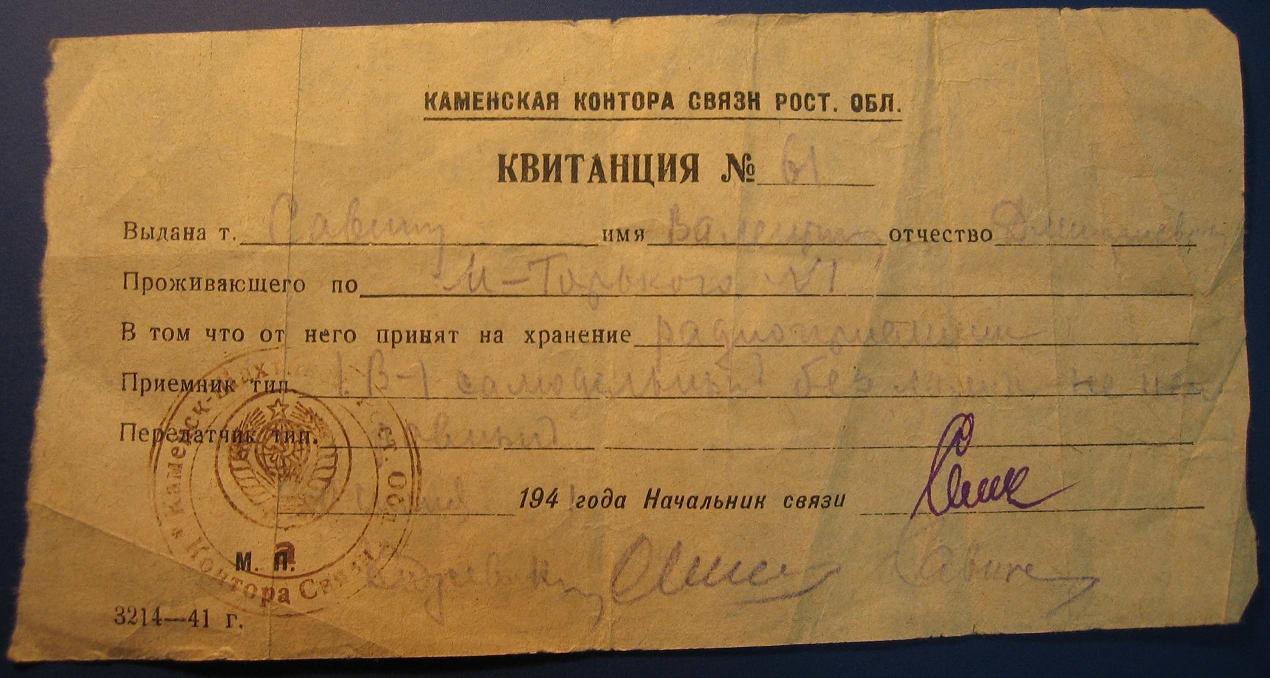 КАМЕНСКАЯ КОНТОРА СВЯЗИ РОСТ. ОБЛ.
КВИТАНЦИЯ № 61
Выдана т. Савину имя Валентин отчество
Проживающего по М-Горького VI
В том что от него принят на хранение радиоприемник
Приемник тип. самодельный без ламп
Передатчик тип.
194 года Начальник связи
М. П.
Контора Связи
3214—41 г.